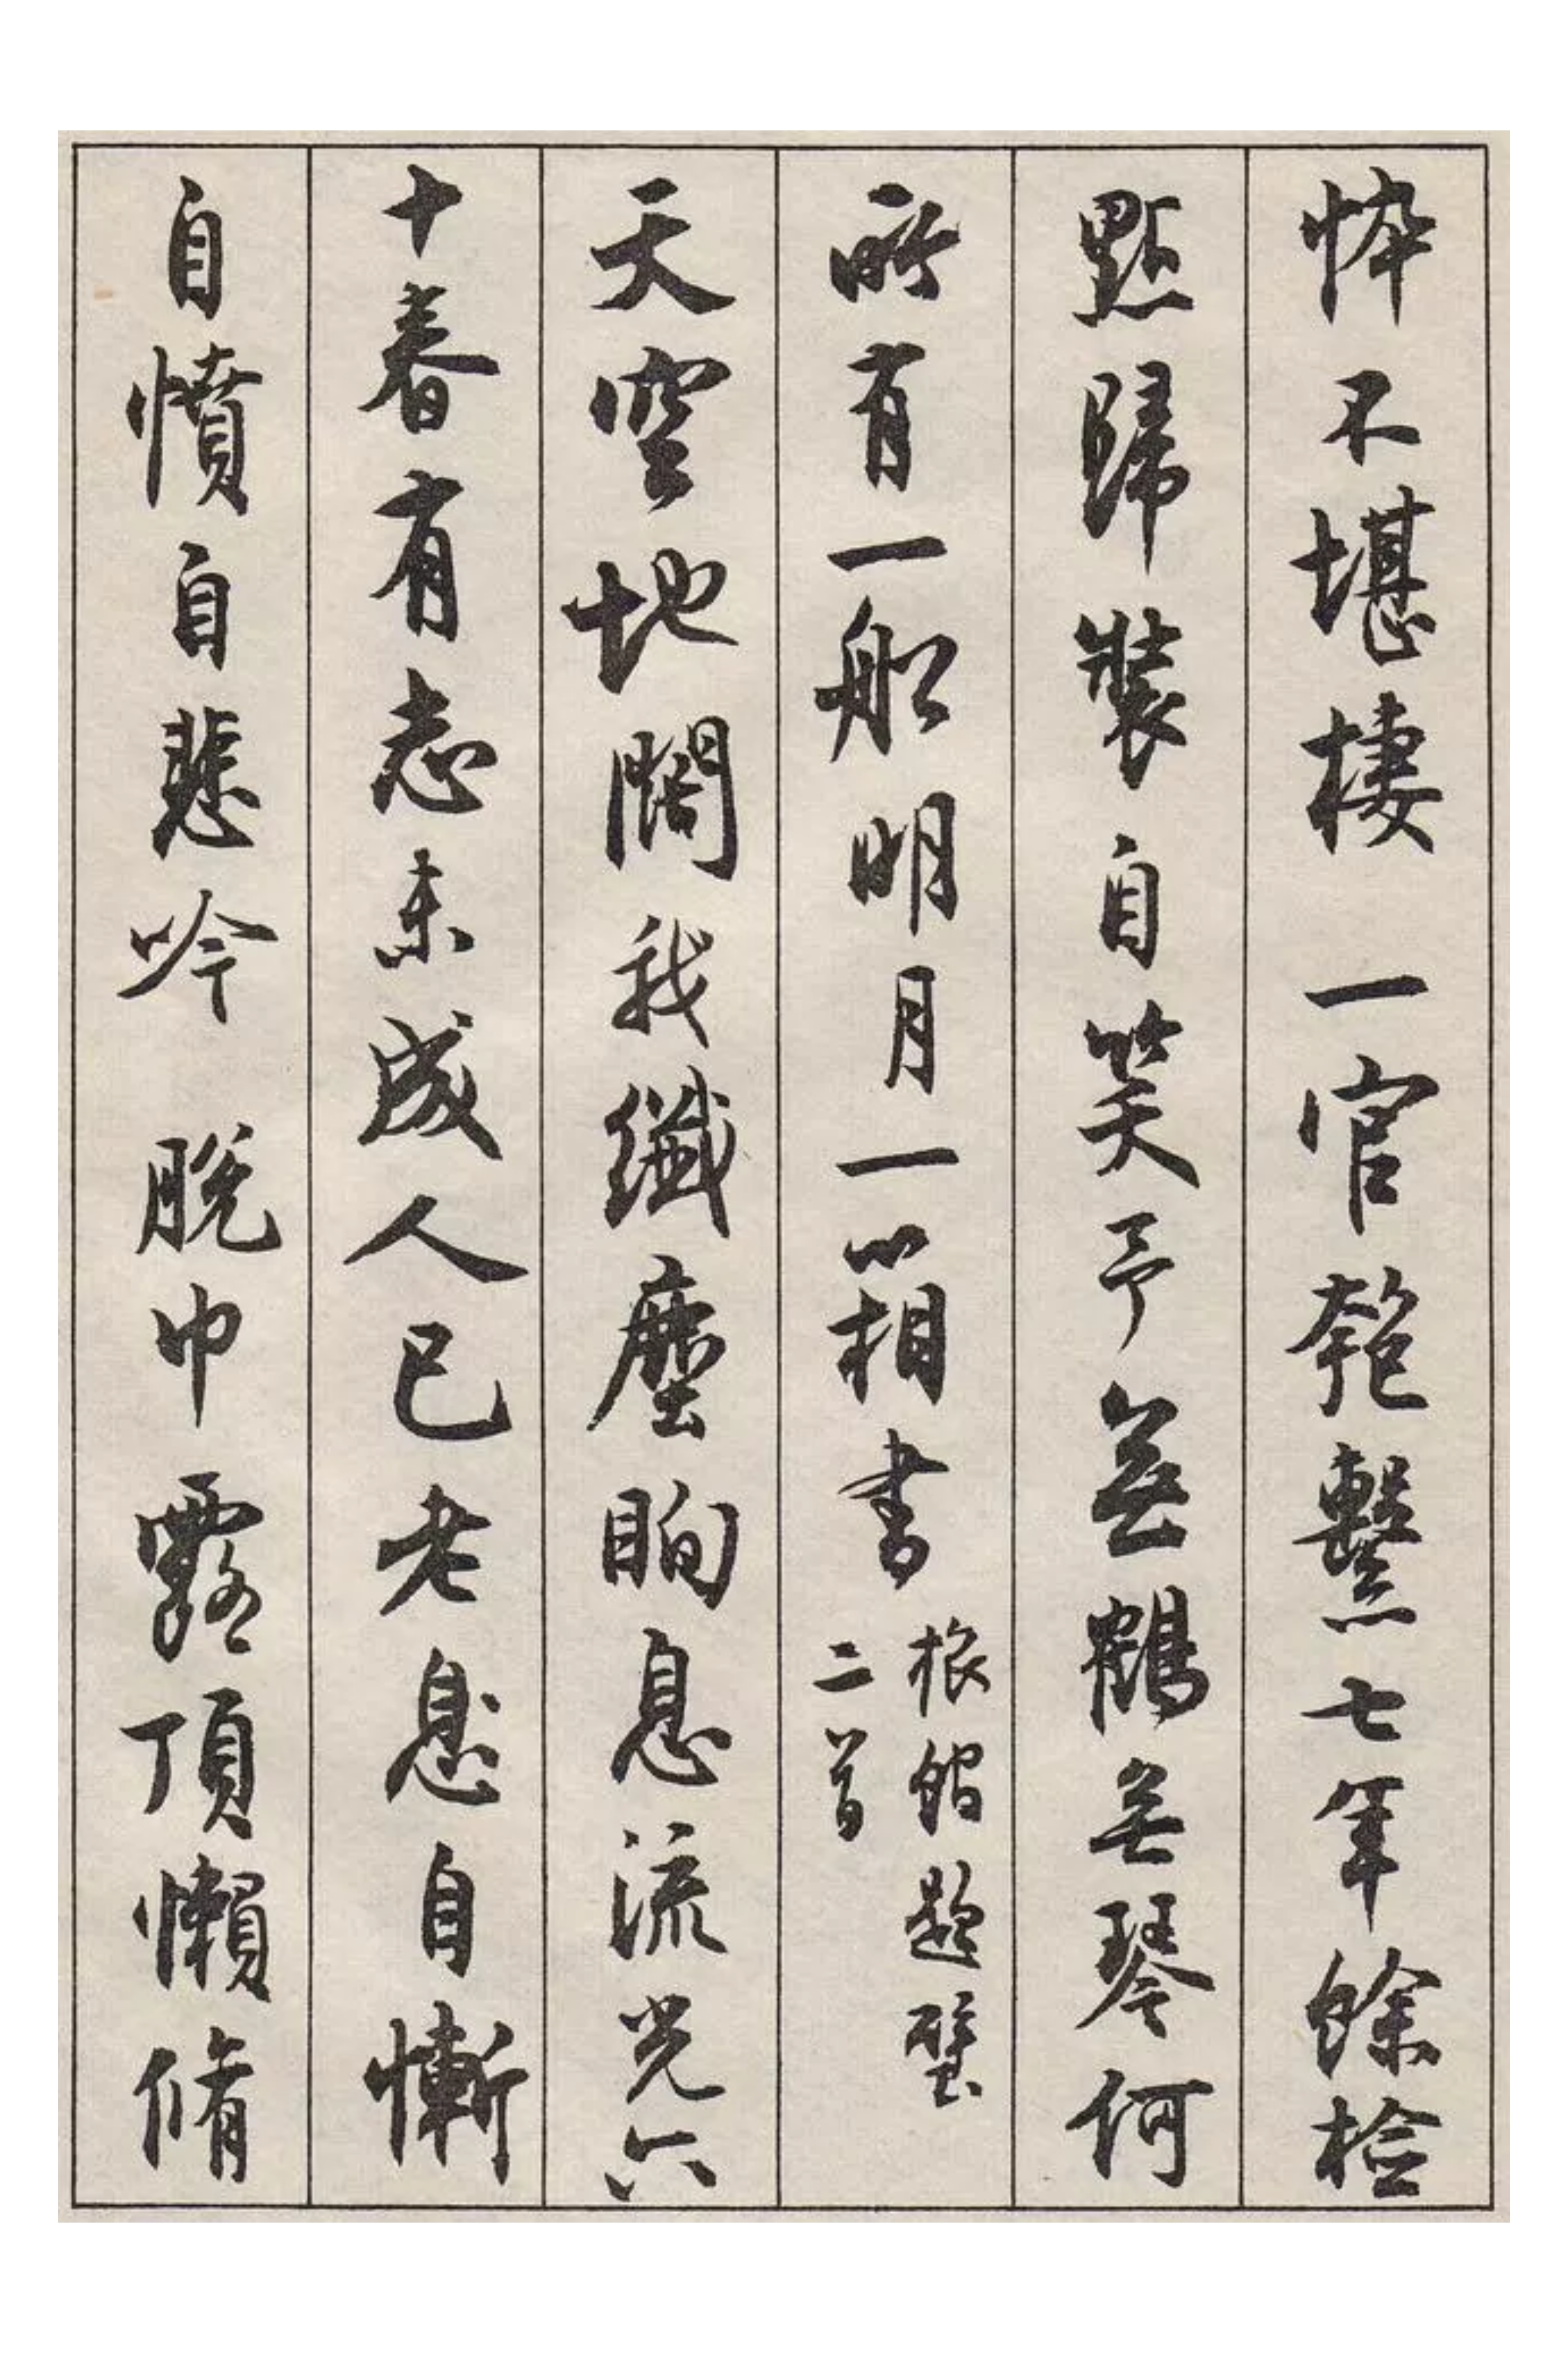 悴不堪棲一官匏繫七年餘檢
點歸裝自笑予無鶴無琴何
所有一船明月一箱書旅館題壁二首
天空地闊我纖塵眴息流光六
十春有志未成人已老息自慚
自憤自悲吟脫巾露頂懶脩